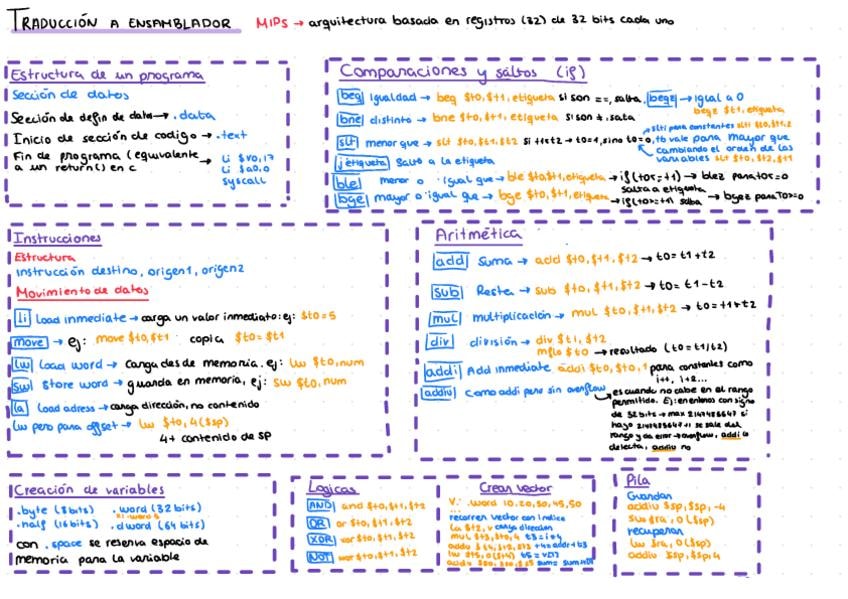 TRADUCCIÓN A ENSAMBLADOR MIPS → arquitectura basada en registros (32) de 32 bits cada uno
Estructura de un programa
Sección de datos
Sección de defin de datos → .data
Inicio de sección de codigo → .text
Fin de programa (equivalente a un return() en c
→ li $v0,17
li $a0,0
syscall
Comparaciones y saltos (if)
beq igualdad → beq $t0,$t1,etiqueta si son ==, salta.
begz → igual a 0
begz $t1, etiqueta
bne distinto → bne $t0,$t1,etiqueta si son ≠, salta
slti para constantes slti $t0,$t1,2
slt menor que → slt $t0,$t1,$t2 si t1<t2 → t0=1, sino t0=0, tb vale para mayor que
cambiando el orden de las
variables slt $t0,$t2,$t1
j etiqueta Salto a la etiqueta
ble menor o igual que → ble $t0,$t1,etiqueta → if(t0≤=t1) → blez para t0≤=0
salta a etiqueta
bge mayor o igual que → bge $t0,$t1,etiqueta → if(t0>=t1) salta → bgez para T0>=0
Instrucciones
Estructura
instrucción destino, origen1, origen2
Movimiento de datos
li Load inmediate → carga un valor inmediato: ej: $t0=5
move → ej: move $t0,$t1 copia $t0=$t1
lw Load word → Carga desde memoria. ej: lw $t0,num
sw Store word → guarda en memoria, ej: sw $t0,num
la Load adress → carga dirección, no contenido
lw pero para offset → lw $t0, 4($sp)
4+ contenido de sp
Aritmética
add Suma → add $t0,$t1,$t2 → t0= t1+t2
sub Resta → sub $t0,$t1,$t2 → t0= t1-t2
mul multiplicación → mul $t0,$t1,$t2 → t0=t1*t2
div división → div $t1,$t2
mflo $t0 → resultado (t0=t1/t2)
addi Add inmediate addi $t0,$t0,1 para constantes como
i++, i+2...
addiu Como addi pero sin overflow
es cuando no cabe en el rango
permitido. Ej: en enteros con signo
de 32 bits → max 2147483647 si
hago 2147483647+1 se sale del
rango y da error → overflow, addi lo
detecta, addiu no
Creación de variables
.byte (8bits) .word (32 bits)
.half (16 bits) .dword (64 bits)
con .space se reserva espacio de
memoria para la variable
Logicas
AND and $t0,$t1,$t2
OR or $t0,$t1,$t2
XOR xor $t0,$t1,$t2
NOT nor $t0,$t1,$t2
Crear vector
V: .word 10,20,30,45,50
...
recorrer vector con indice
la $t2, v carga direccion
mul $t3,$t0,4 t3=i*4
addu $t4,$t2,$t3 t4=addr+t3
lw $t5,0($t4) t5=v[i]
Pila
Guardar
addiu $sp,$sp,-4
sw $ra, 0($sp)
recuperar
lw $ra, 0($sp)
addiu $sp,$sp,4